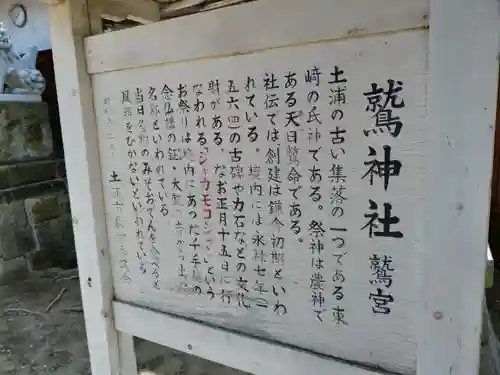 鷲神社 鷲宮
土浦の古い集落の一つである東
崎の氏神である。祭神は農神で
ある天日鷲命である。
社伝では創建は鎌倉初期といわ
れている。境内には永禄七年(一
五六四)の古碑や力石などの文化
財がある。なお正月十五日に行
なわれる「ジャカモコジャン」という
お祭りは境内にあった千手観音の
念仏
名称といわれている
当日
のみそおでんを食べると
風邪をひかないといわれている
土浦